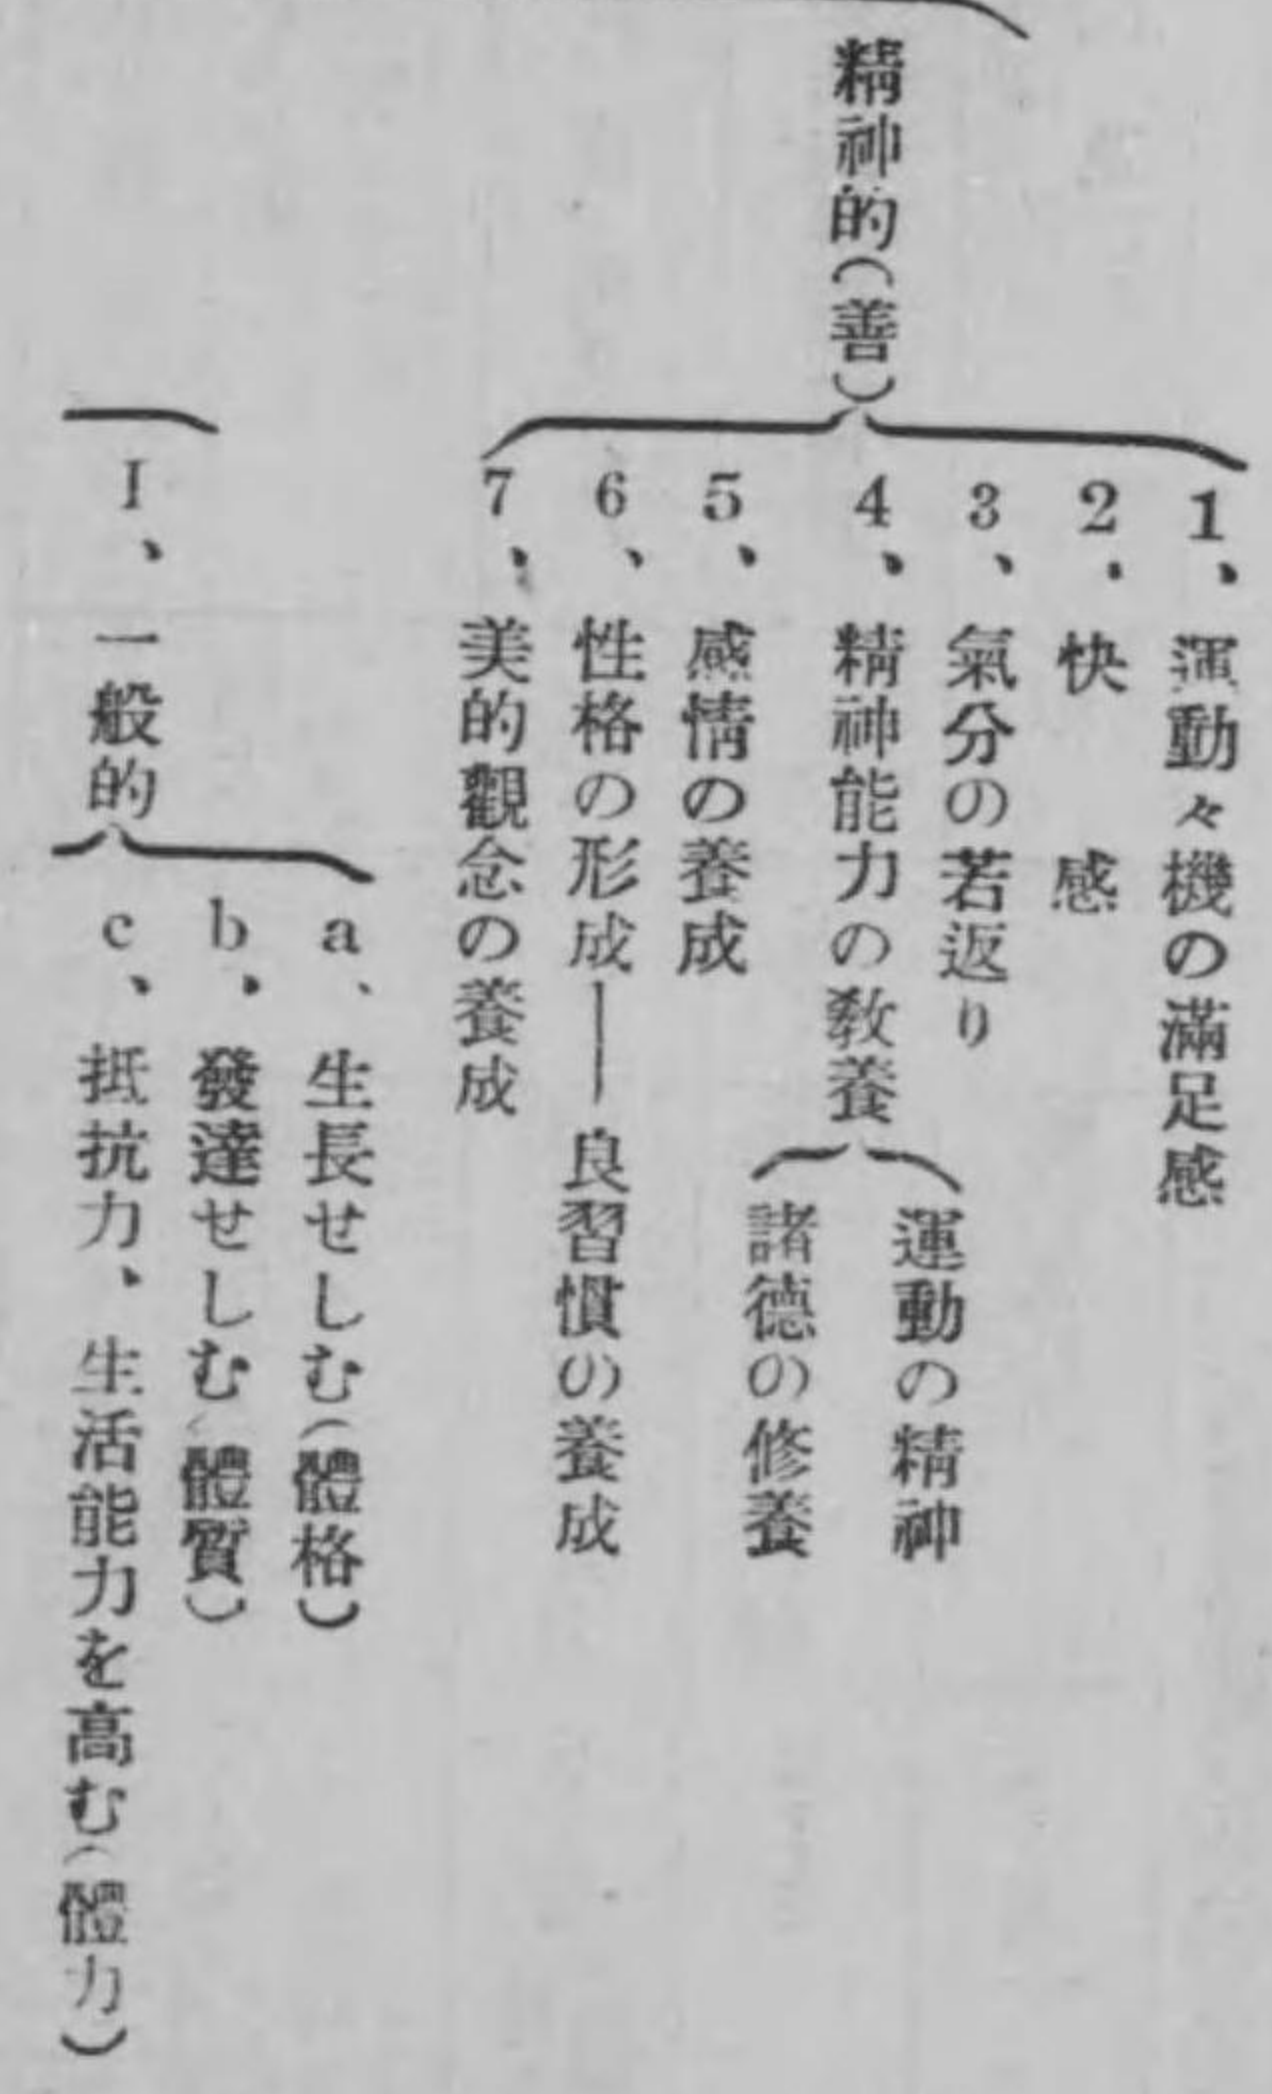 精神的(善)
1、運動々機の滿足感
2、快感
3、氣分の若返り
4、精神能力の敎養
運動の精神
諸德の修養
5、感情の養成
6、性格の形成——良習慣の養成
7、美的觀念の養成
I、一般的
a、生長せしむ(體格)
b、發達せしむ(體質)
c、抵抗力、生活能力を高む(體力)